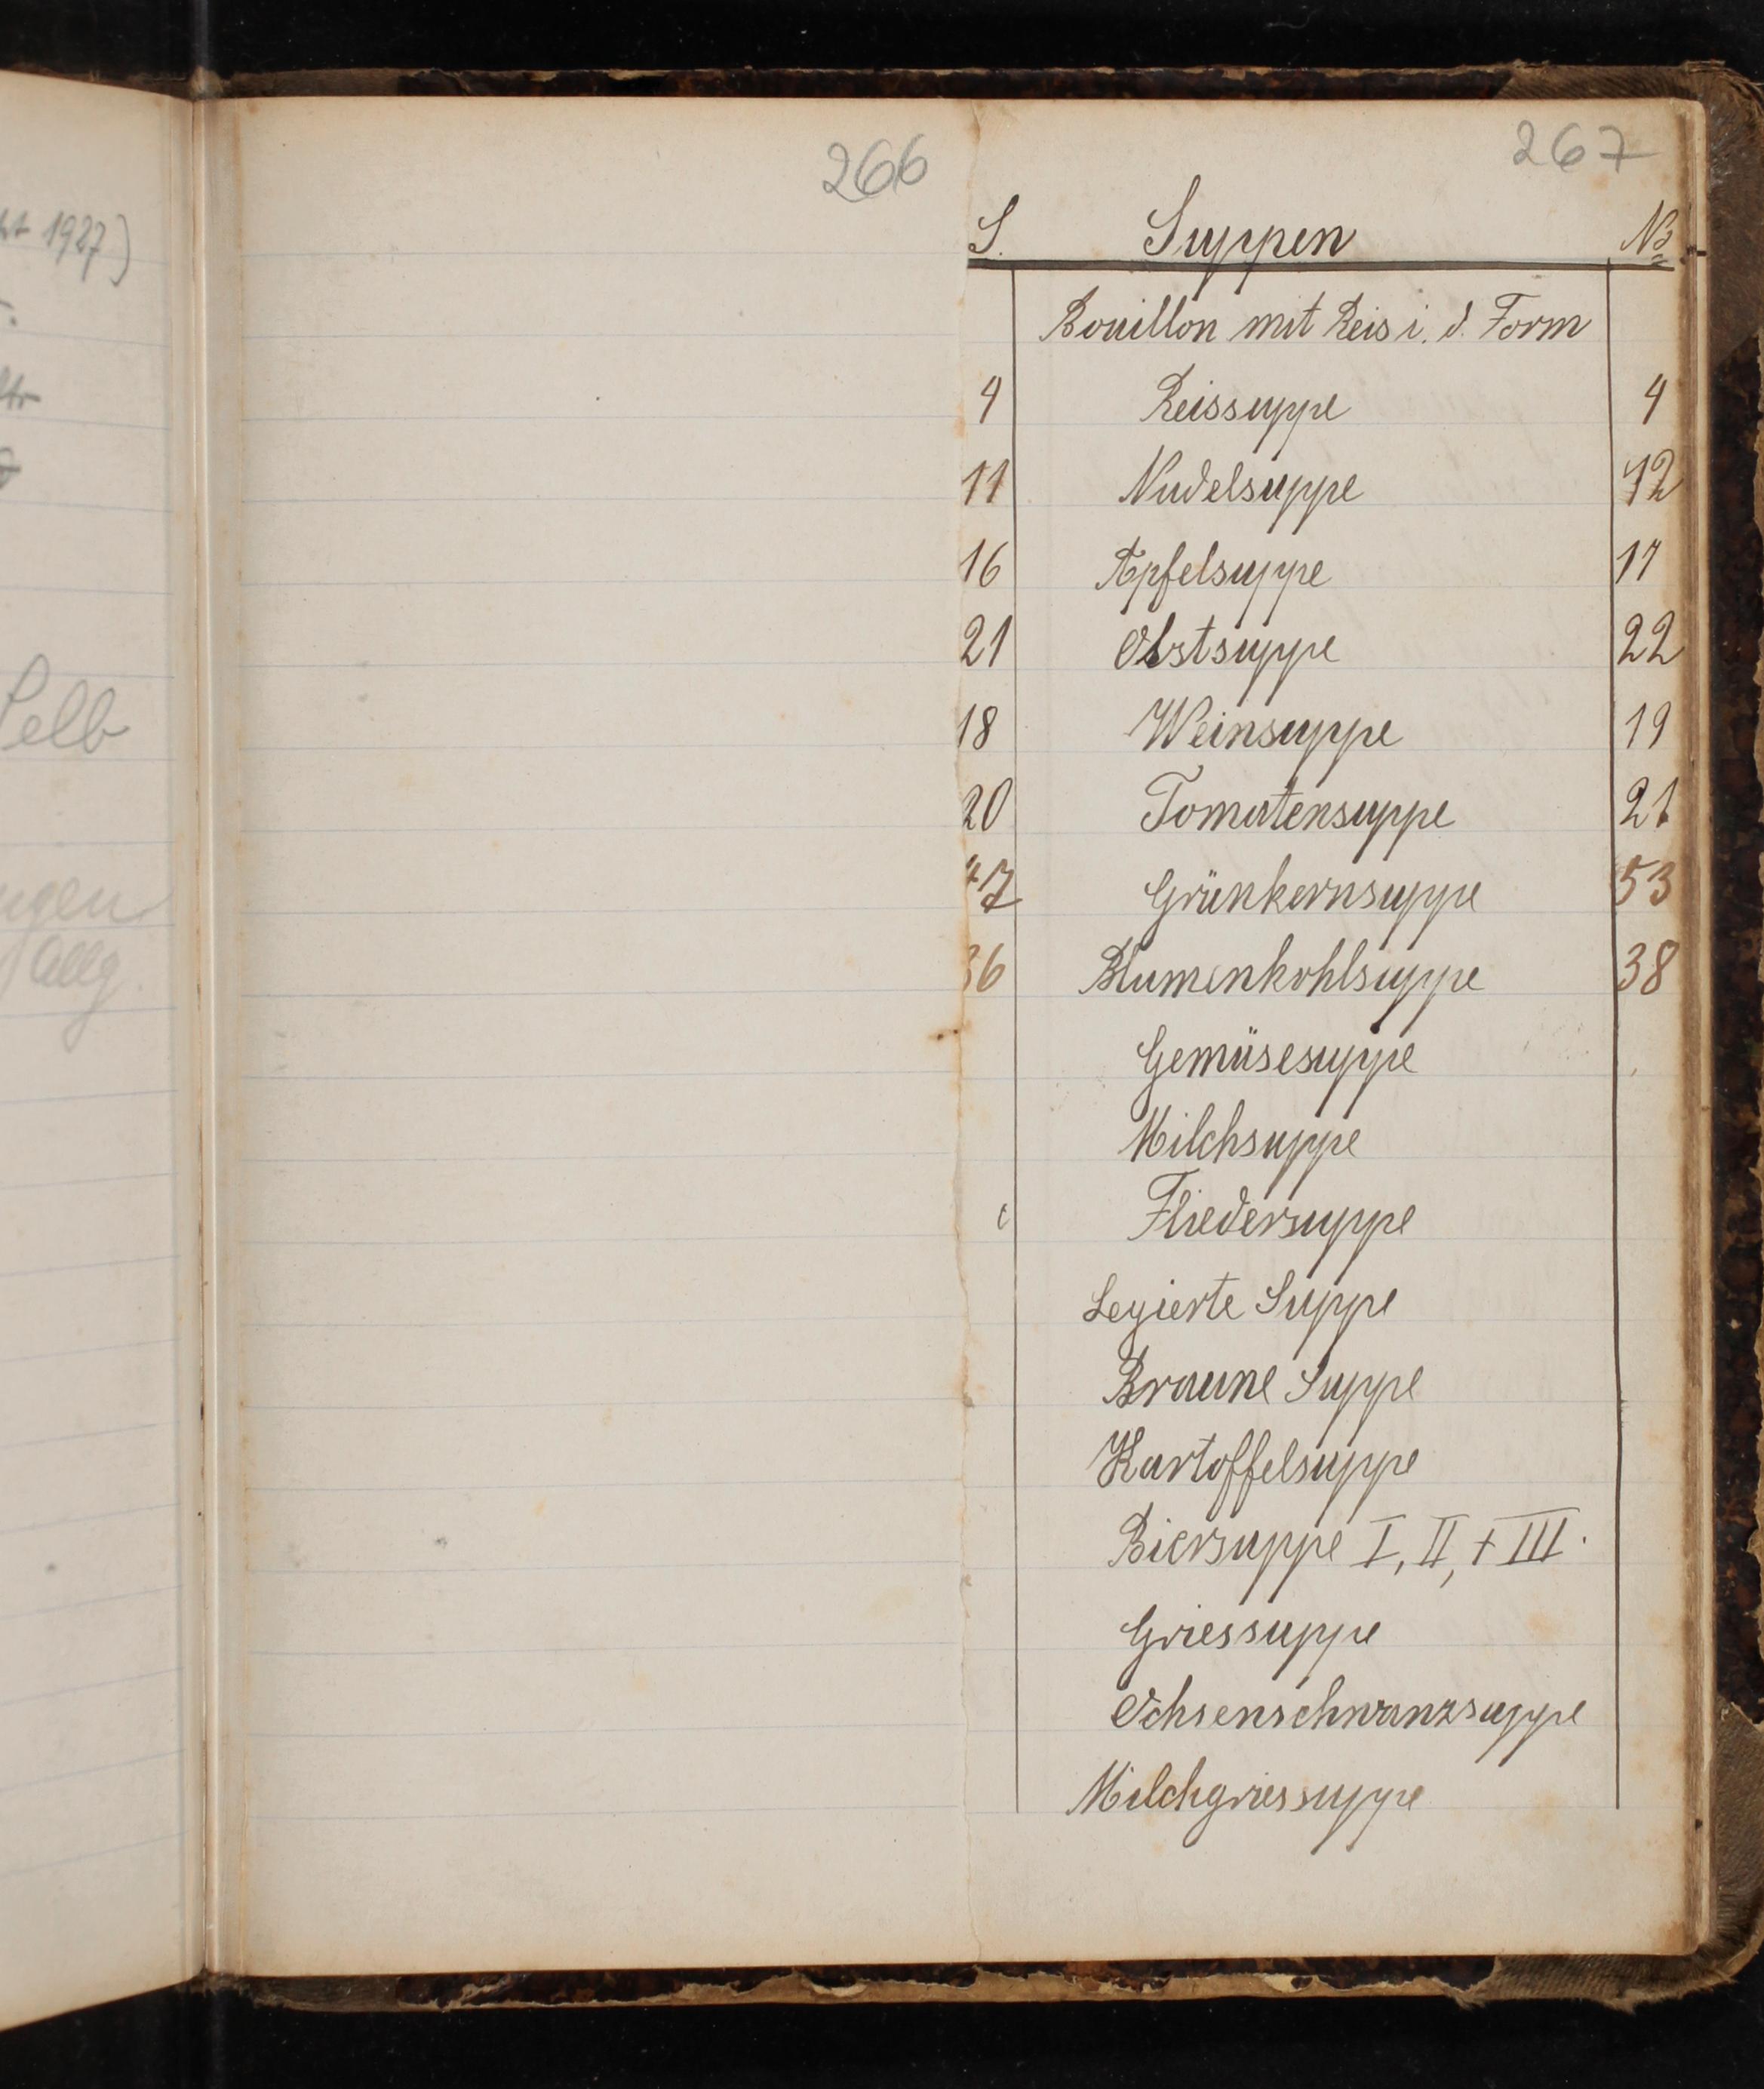 ht 1927)
Selb
ngen
Allg.
266
267
S. Suppen No
Bouillon mit Reis i. d. Form
4 Reissuppe 4
11 Nudelsuppe 12
16 Apfelsuppe 17
21 Obstsuppe 22
18 Weinsuppe 19
20 Tomatensuppe 21
47 Grünkernsuppe 53
36 Blumenkohlsuppe 38
Gemüsesuppe
Milchsuppe
Fliedersuppe
Legierte Suppe
Braune Suppe
Kartoffelsuppe
Biersuppe I, II, + III.
Griessuppe
Ochsenschwanzsuppe
Milchgriessuppe